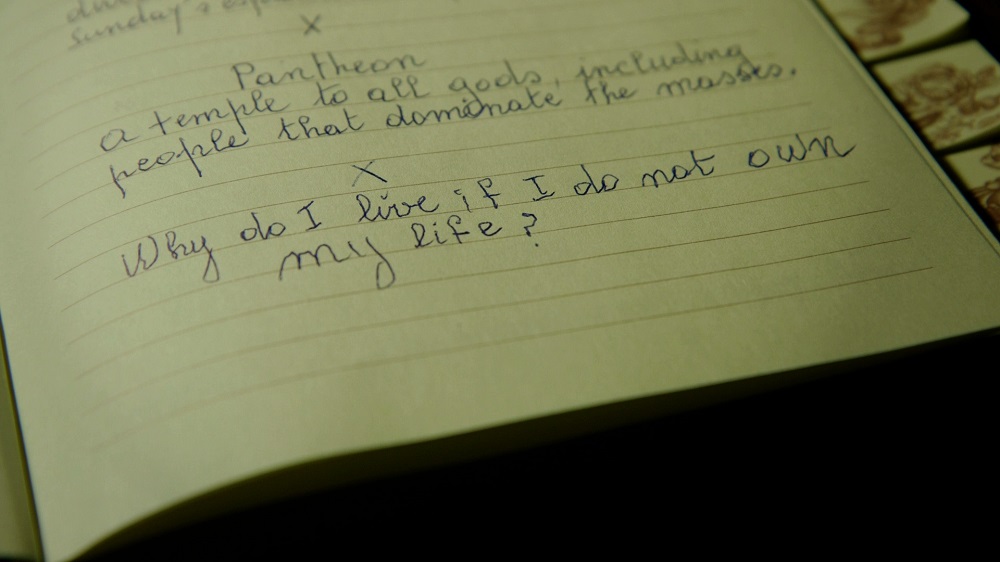 sunday's
X
Pantheon
a temple to all gods, including
people that dominate the masses.
X
Why do I live if I do not own
my life?